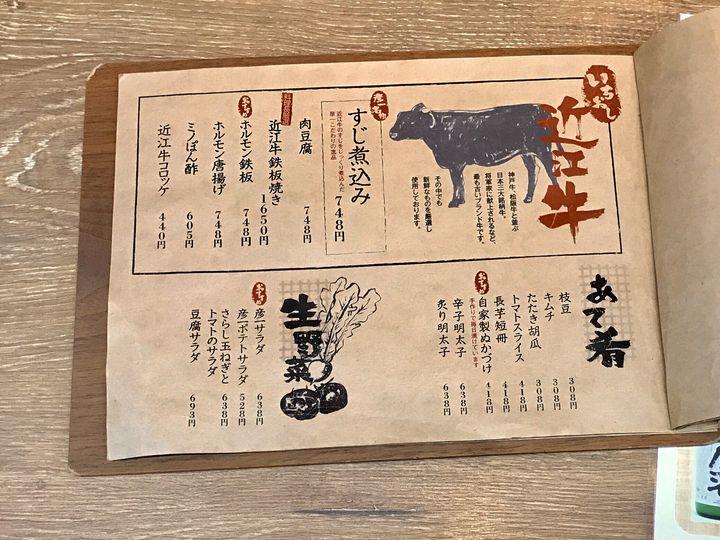 いちおし
近江牛
神戸牛、松阪牛と並ぶ
日本三大銘柄牛。
将軍家に献上されるなど、
最も古いブランド牛です。
その中でも
新鮮なものを厳選し
使用しております。
彦一名物
すじ煮込み 748円
近江牛のすじをじっくり煮込んだ
彦一こだわりの逸品
肉豆腐 748円
料理長厳選
近江牛鉄板焼き 1650円
おすすめ
ホルモン鉄板 748円
ホルモン唐揚げ 748円
ミノぽん酢 605円
近江牛コロッケ 440円
あて肴
枝豆 308円
キムチ 308円
たたき胡瓜 308円
トマトスライス 418円
長芋短冊 418円
おすすめ
自家製ぬかづけ 418円
手作りで毎日漬けています
辛子明太子 638円
炙り明太子 638円
生野菜
おすすめ
彦一サラダ 638円
彦一ポテトサラダ 528円
さらし玉ねぎと
トマトのサラダ 638円
豆腐サラダ 693円